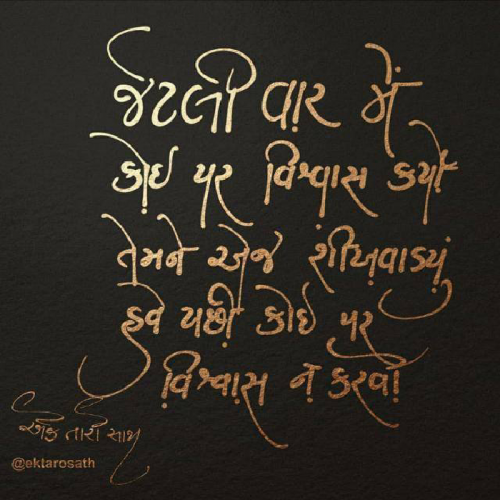 જેટલી વાર મેં
કોઇ પર વિશ્વાસ કર્યો
તેમને એજ શીખવાડ્યું
હવે પછી કોઇ પર
વિશ્વાસ ન કરવો
એક તારો સાથ
@ektarosath